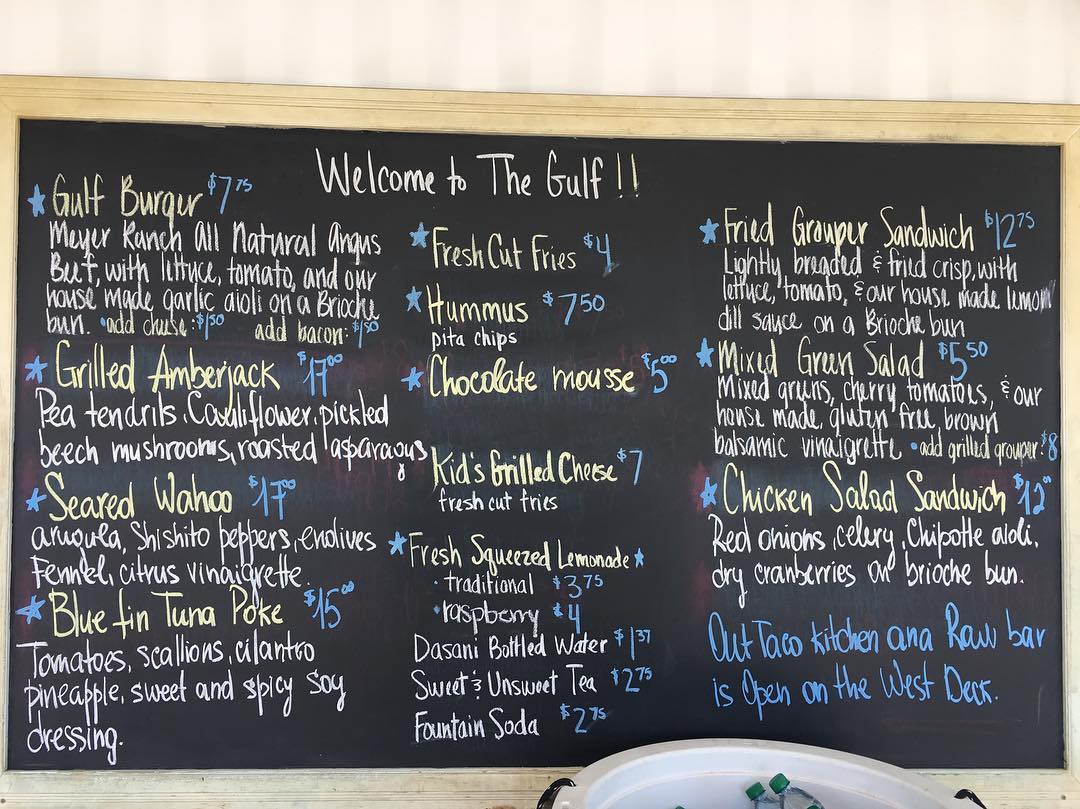 Welcome to The Gulf!!
Gulf Burger $7.75
Meyer Ranch All Natural Angus
Beef, with lettuce, tomato, and our
house made garlic aioli on a Brioche
bun. •add cheese: $1.50 add bacon: $1.50
Grilled Amberjack $17.00
Pea tendrils, Cauliflower, pickled
beech mushrooms, roasted asparagus
Seared Wahoo $17.00
arugula, Shishito peppers, endives
Fennel, citrus vinaigrette.
Blue fin Tuna Poke $15.00
Tomatoes, scallions, cilantro
pineapple, sweet and spicy soy
dressing.
Fresh Cut Fries $4
Hummus $7.50
pita chips
Chocolate mousse $5.00
Kid's Grilled Cheese $7
fresh cut fries
Fresh Squeezed Lemonade
• traditional $3.75
• raspberry $4
Dasani Bottled Water $1.37
Sweet & Unsweet Tea $2.75
Fountain Soda $2.75
Fried Grouper Sandwich $12.75
Lightly breaded & fried crisp, with
lettuce, tomato, & our house made lemon
dill sauce on a Brioche bun
Mixed Green Salad $5.50
Mixed greens, cherry tomatoes, & our
house made, gluten free, brown
balsamic vinaigrette •add grilled grouper: $8
Chicken Salad Sandwich $12.00
Red onions, celery, Chipotle aioli,
dry cranberries on brioche bun.
Out Taco kitchen and Raw bar
is Open on the West Deck.